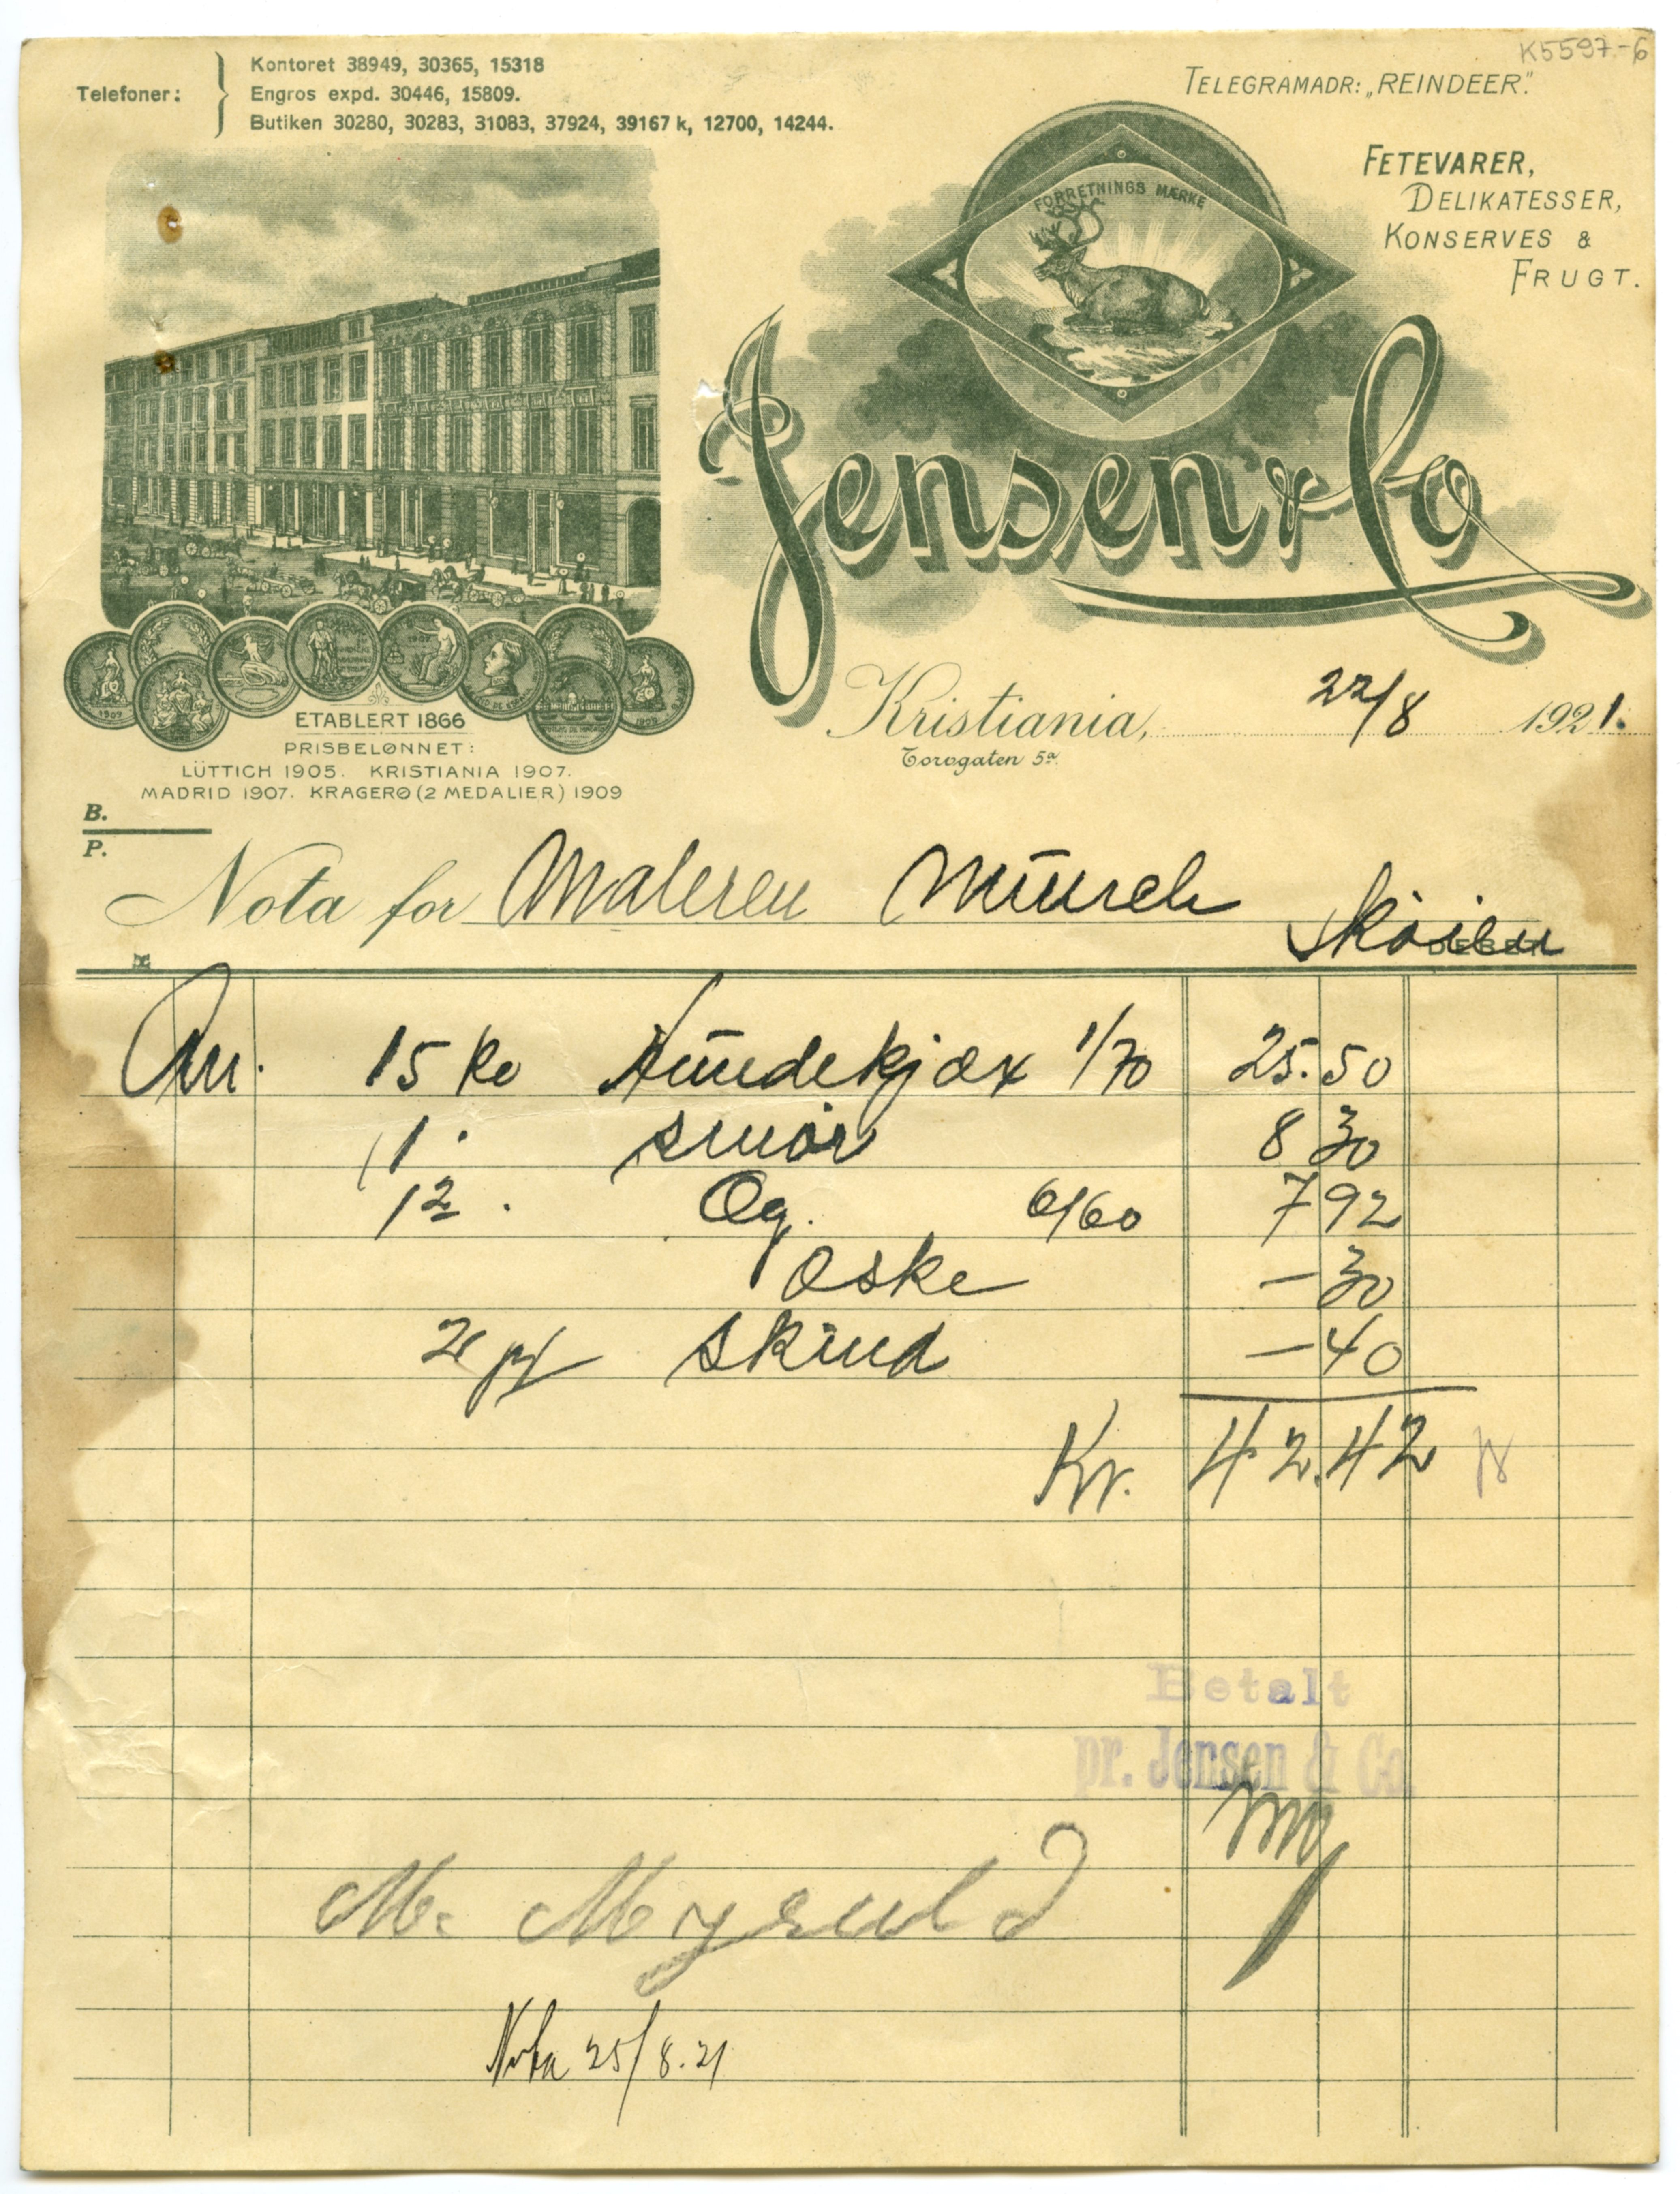 K5597.-6
Telefoner:
Kontoret 38949, 30365, 15318
Engros expd. 30446, 15809.
Butiken 30280, 30283, 31083, 37924, 39167 k, 12700, 14244.
TELEGRAMADR: „REINDEER".
FETEVARER,
DELIKATESSER,
KONSERVES &
FRUGT.
FORRETNINGS MÆRKE
Jensen & Co
ETABLERT 1866
PRISBELØNNET:
LÜTTICH 1905. KRISTIANIA 1907.
MADRID 1907. KRAGERØ (2 MEDALIER) 1909
Kristiania, 22/8 1921.
Torvgaten 5a.
B.
P.
Nota for Maleren Munch
Skøien
DEBET
15 ko Hundekjæx 1/70 25.50
1 . smör 8 30
12 . Æg. 6/60 7 92
æske — 30
2 skind — 40
Kr. 42.42
Betalt
pr. Jensen & Co.
M.
Nota 25/8.21